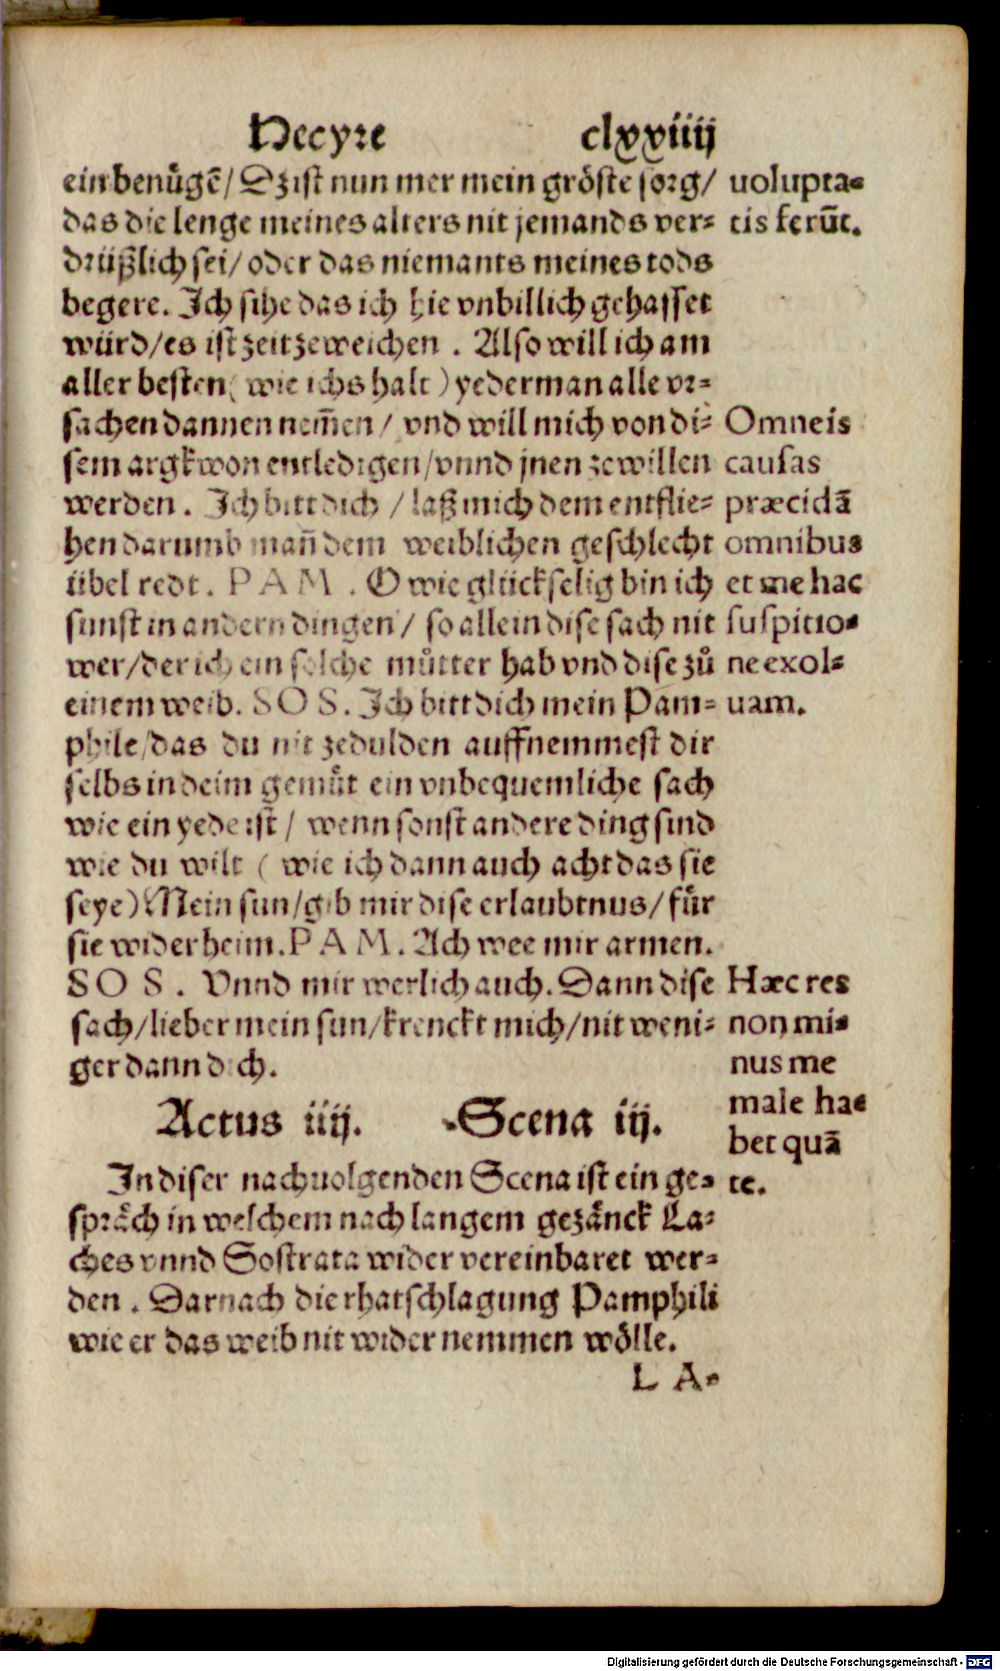 Hecyre clxxiiij
ein benuͤgē/ Dz ist nun mer mein groͤste sorg/
das die lenge meines alters nit jemands ver-
drüßlich sei/ oder das niemants meines tods
begere. Ich sihe das ich hie vnbillich gehasset
würd/es ist zeit zeweichen . Also will ich am
aller besten( wie ichs halt ) yederman alle vr-
sachen dannen nem̄en / vnd will mich von di-
sem argkwon entledigen/vnnd jnen zewillen
werden . Ich bitt dich / laß mich dem entflie-
hen darumb man̄ dem weiblichen geschlecht
übel redt. PAM . O wie glückselig bin ich
sunst in andern dingen / so allein dise sach nit
wer/der ich ein solche muͤtter hab vnd dise zuͦ
einem weib. SOS. Ich bitt dich mein Pam-
phile/das du nit zedulden auffnemmest dir
selbs in deim gemuͤt ein vnbequemliche sach
wie ein yede ist / wenn sonst andere ding sind
wie du wilt ( wie ich dann auch acht das sie
seye) Mein sun/gib mir dise erlaubtnus/ fuͤr
sie wider heim. PAM. Ach wee mir armen.
SOS . Vnnd mir werlich auch. Dann dise
sach/lieber mein sun/krenckt mich/nit weni-
ger dann dich.
Actus iiij. Scena iij.
In diser nachuolgenden Scena ist ein ge-
spraͤch in welchem nach langem gezaͤnck La-
ches vnnd Sostrata wider vereinbaret wer-
den . Darnach die rhatschlagung Pamphili
wie er das weib nit wider nemmen woͤlle.
LA-
uolupta-
tis ferūt.
Omneis
causas
præcidā
omnibus
et me hac
suspitio-
ne exol-
uam.
Hæc res
non mi-
nus me
male ha-
bet quā
te.
Digitalisierung gefördert durch die Deutsche Forschungsgemeinschaft - DFG